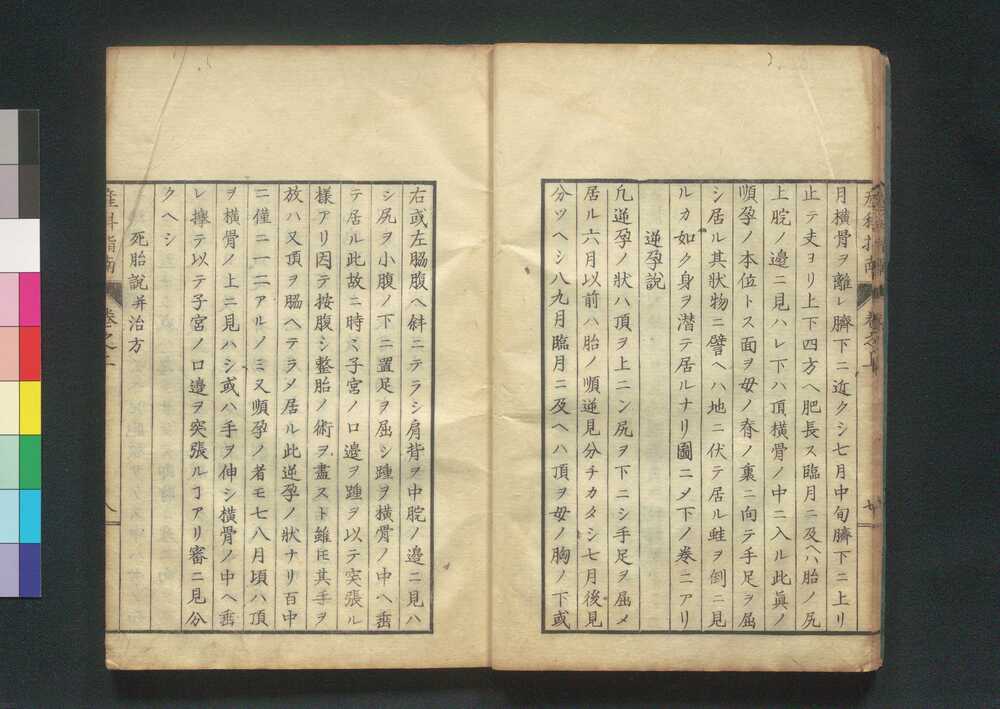 月横骨ヲ離レ臍下ニ近クシ七月中旬臍下ニ上リ
止テ夫ヨリ上下四方ヘ肥長ス臨月ニ及ヘハ胎ノ尻
上脘ノ邉ニ見ハレ下ハ頂横骨ノ中ニ入ル此眞ノ
順孕ノ本位トス面ヲ母ノ脊ノ裏ニ向テ手足ヲ屈
シ居ル其狀物ニ譬ヘハ地ニ伏テ居ル蛙ヲ倒ニ見
ルカ如ク身ヲ潜テ居ルナリ圖ニメ下ノ巻ニアリ
逆孕說
凢逆孕ノ狀ハ頂ヲ上ニン尻ヲ下ニシ手足ヲ屈メ
居ル六月以前ハ胎ノ順逆見分チカタシ七月後見
分ツヘシ八九月臨月ニ及ヘハ頂ヲ母ノ胸ノ下或
右或左脇腹ヘ斜ニテラシ肩背ヲ中脘ノ邉ニ見ハ
シ尻ヲ小腹ノ下ニ置足ヲ屈シ踵ヲ横骨ノ中ヘ垂
テ居ル此故ニ時〻子宮ノ口邉ヲ踵ヲ以テ突張ル
樣アリ因テ按腹シ整胎ノ術ヲ盡スト雖𪜈其手ヲ
放ハ又頂ヲ脇ヘテラメ居ル此逆孕ノ狀ナリ百中
ニ僅ニ一二アルノミ又順孕ノ者モ七八月頃ハ頂
ヲ横骨ノ上ニ見ハシ或ハ手ヲ伸シ横骨ノ中ヘ垂
レ擇テ以テ子宮ノ口邉ヲ突張ルヿアリ審ニ見分
クヘシ
死胎說并治方
産科指南
巻之上
八